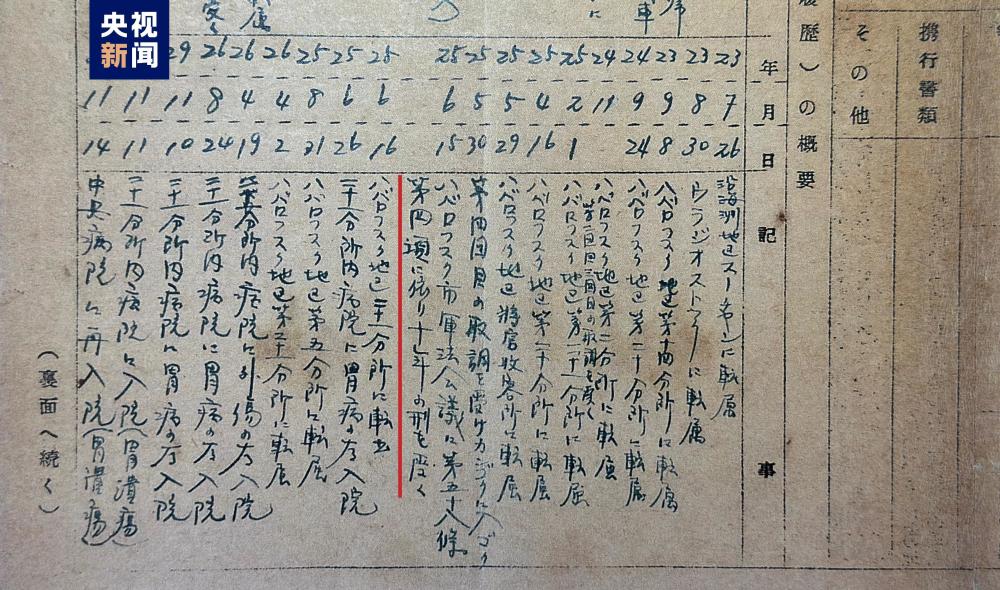 央视新闻
携行書類
その他
履歴)の概要
年
月
日
記事
23 7 26 沿海洲地区スーチャンに転属
23 8 30 ウラジオストックに転属
23 9 8 ハバロフスク地区第十四分所に転属
24 9 24 ハバロフスク地区第二十分所に転属
24 11 ハバロフスク地区第 分所に転属
回目の取調を受く
25 2 1 ハバロフスク地区第二十分所に転属
25 4 16 ハバロフスク地区第二十分所に転属
25 5 29 ハバロフスク地区将官収容所に転属
25 5 30 第四回目の取調を受け
25 6 15 ハバロフスク市軍法会議に第五十八條
第四項に依り十五年の刑を受く
25 6 16 ハバロフスク地区二十一分所に転出
25 6 26 二十一分所内病院に胃病の為入院
25 8 31 ハバロフスク地区第五分所に転属
26 4 2 ハバロフスク地区第二十一分所に転属
26 4 19 分所内病院に外傷の為入院
26 8 24 二十一分所内病院に胃病の為入院
29 11 10 二十一分所内病院に胃病の為入院
11 11 二十一分所内病院に入院(胃潰瘍)
11 14 中央病院に再入院(胃潰瘍)
(裏面へ続く)